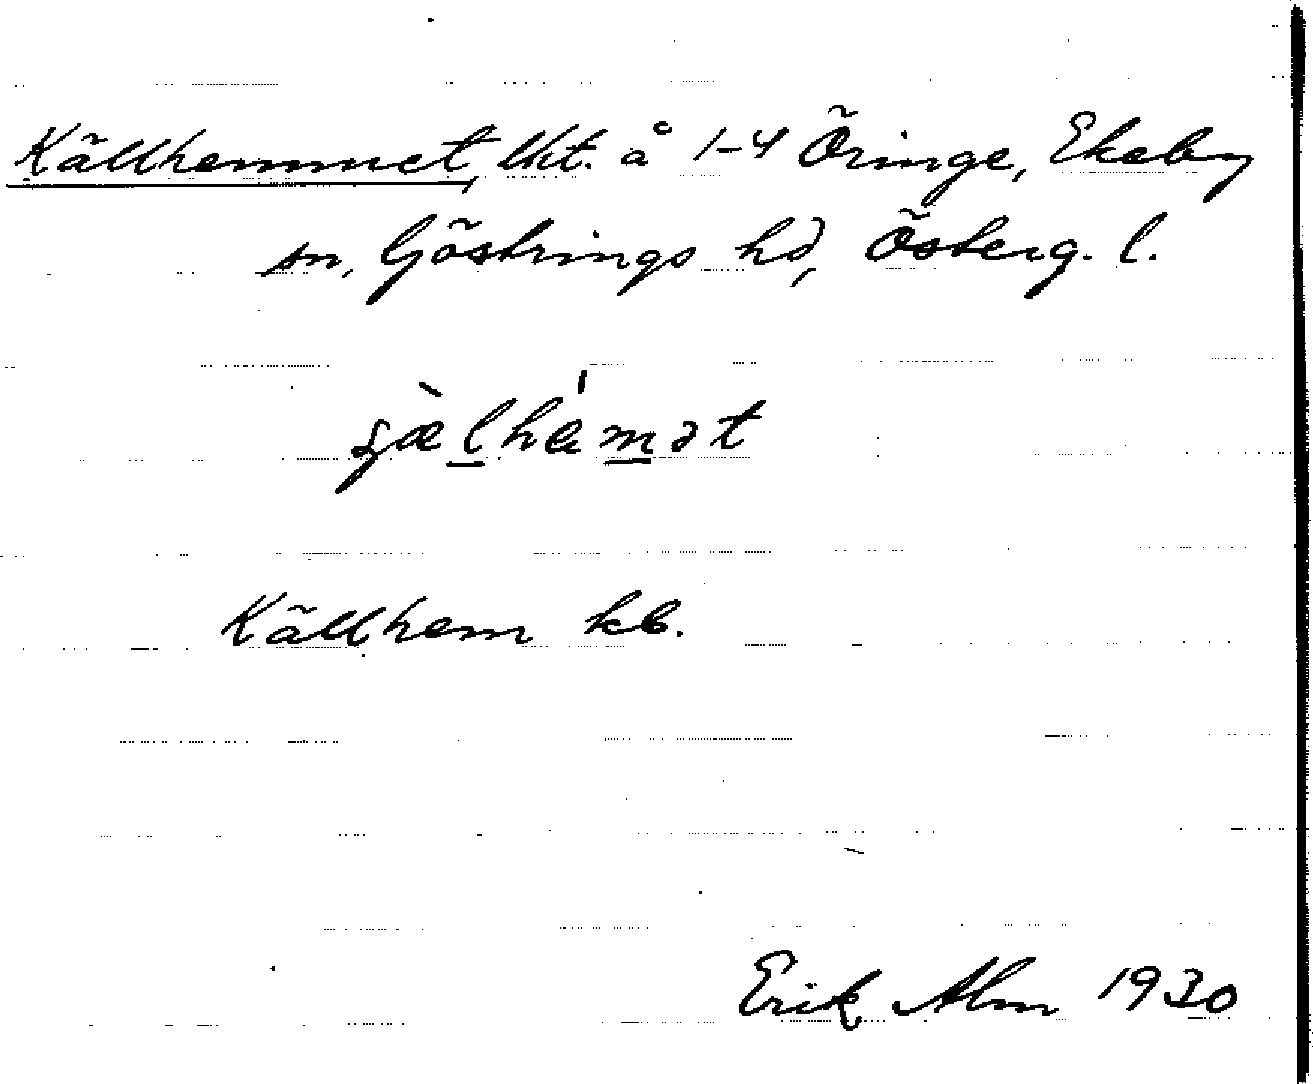 Källhemmet, lht. å 1-4 Öringe, Ekeby
sn, Göstrings hd, Österg. l.
ʂæ̀lhémət
Källhem kb.
Erik Alm 1930